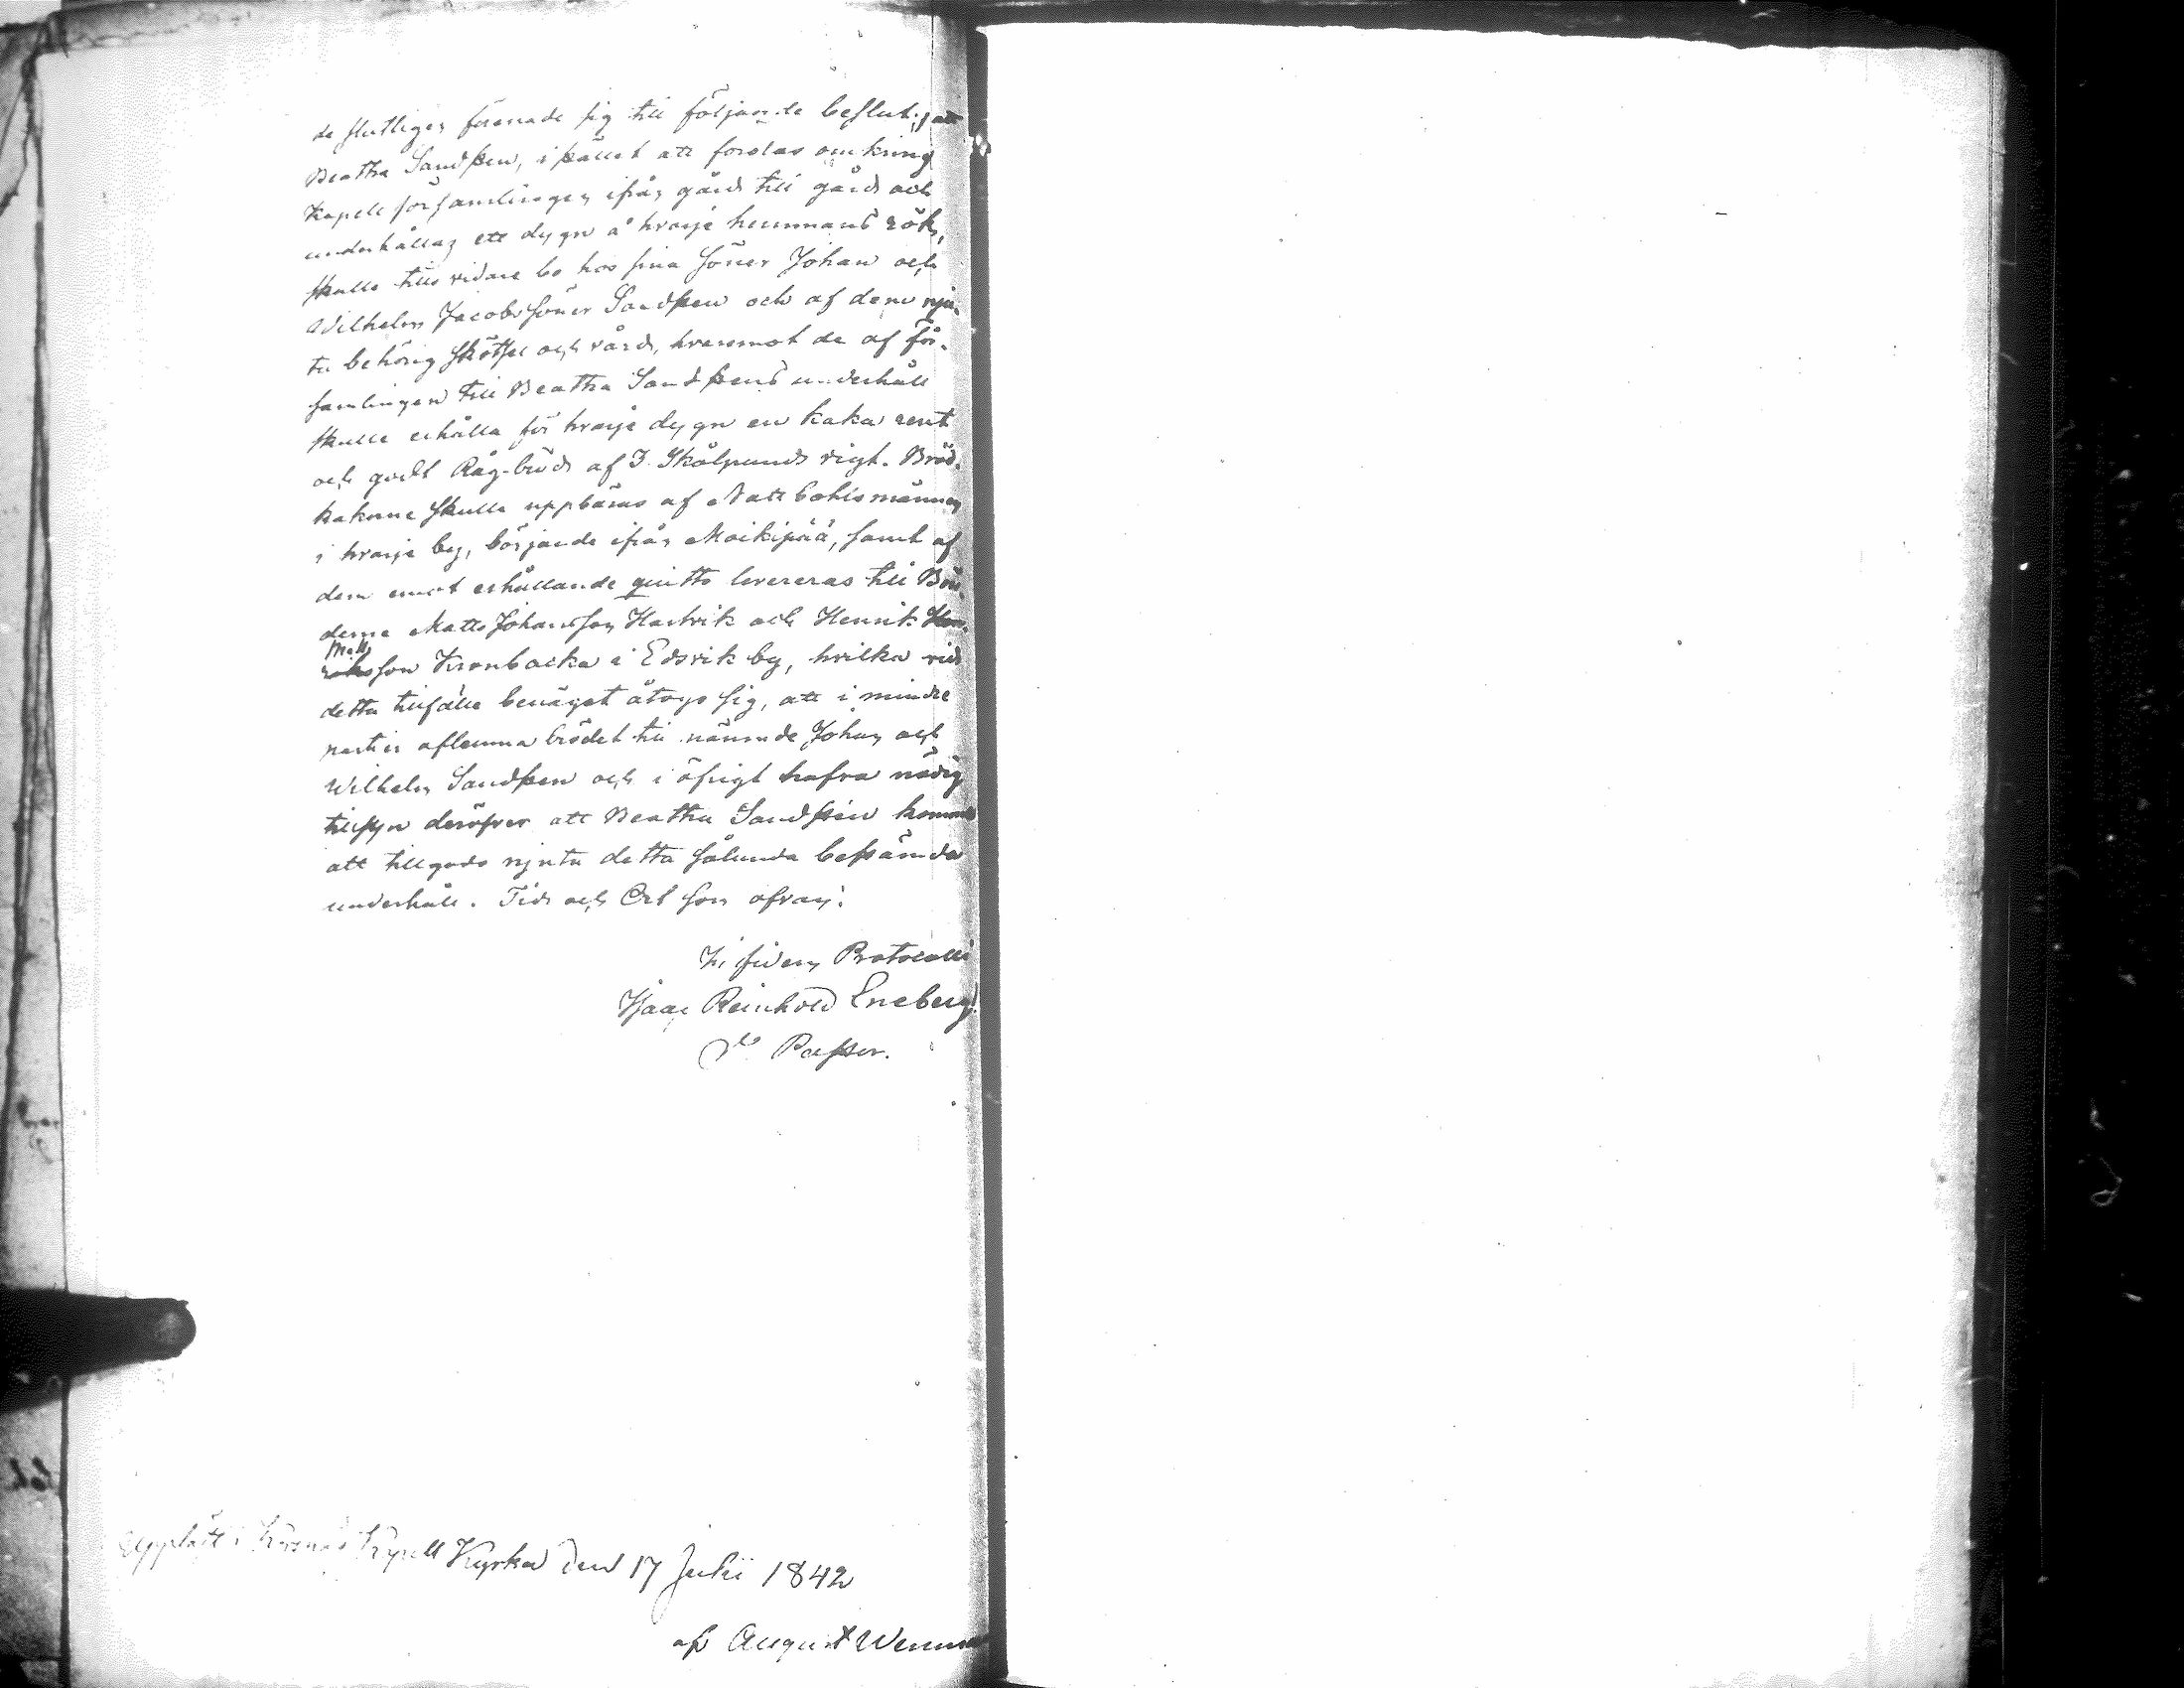 de slutligen förenade sig till följande beslut; att
Beatha Sandsten, i stället att forslas omkring
Kapellförsamlingen ifrån gård till gård och
underhållas ett dygn å hvarje hemmans rök,
skulle tills vidare bo hos sina söner Johan och
Wilhelm Jacobs söner Sandsten och af dem nju-
ta behörig skötsel och vård, hvaremot de af för-
samlingen till Beatha Sandstens underhåll
skulle erhålla för hvarje dygn en kaka rent
och godt Råg-bröd af 3 Skålpunds vigt. Bröd-
kakorne skulle uppbäras af Nattbohlsmännen
i hvarje by, börjande ifrån Moikipää, samt af
dem emot erhållande quitto levereras till Bön-
derne Matts Johansson Hartvik och Henrik
Matts
son Kronbacka i Edsvik by, hvilka vid
detta tillfälle benäget åtogo sig, att i mindre
partier aflemna brödet till nämnde Johan och
Wilhelm Sandsten och i öfrigt hafva nödig
tillsyn deröfver att Beatha Sandsten kommer
att tillgodo njuta detta sålunda bestämda
underhåll. Tid och Ort som ofvan.
In fidem Protocolli
Isaac Reinhold Eneberg.
Pastor.
Uppläst i Korsnäs Kapell Kyrka den 17 Julii 1842
af August